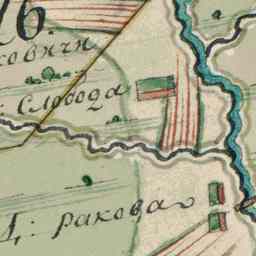 76.
ковичи
Слобода
Д: ракова